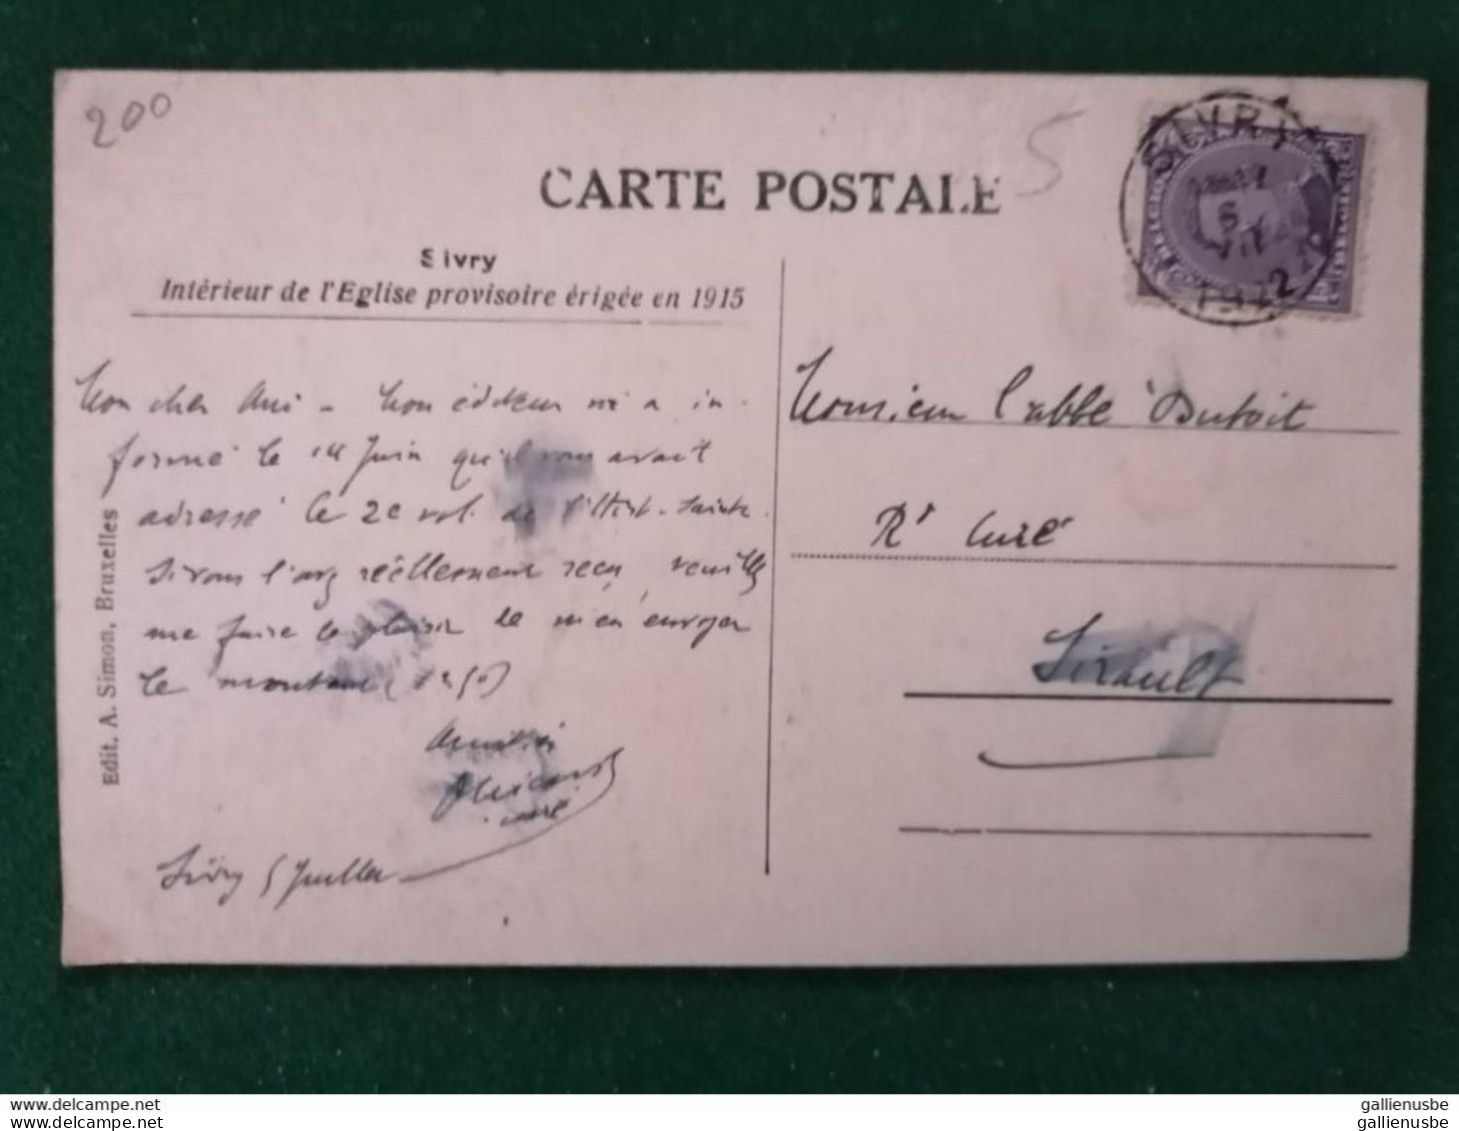 200
5
SIVRY
6
VII
1922
CARTE POSTALE
Sivry
Intérieur de l'Eglise provisoire érigée en 1915
Mon cher Ami - Mon éditeur m'a in-
formé le 1er Juin qu'il vous avait
adressé le 2e vol. de l'Hist. Sainte.
Si vous l'avez réellement reçu, veuillez
me faire le plaisir de m'en envoyer
le montant
curé
Sivry 5 Juillet
Monsieur l'abbé Dutoit
Rd Curé
Sirault
Edit. A. Simon, Bruxelles
gallienusbe
gallienusbe
gallienusbe
gallienusbe